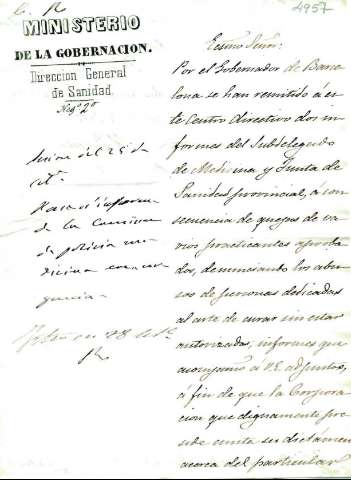 4957
MINISTERIO
DE LA GOBERNACION.
Direccion General
de Sanidad.
Neg.º 2º
Sesion del 25 de
Pase á informe
de la Comision
de policia me
dicina con ur
gencia
Excmo Señor:
Por el Gobernador de Barce
lona se han remitido á es
te Centro directivo dos in
formes del Subdelegado
de Medicina y Junta de
Sanidad provincial, á con
secuencia de quejas de va
rios practicantes aproba
dos, denunciando los abu
sos de personas dedicadas
al arte de curar sin estar
autorizadas, informes que
acompaño á V.E. adjuntos,
á fin de que la Corpora
cion que dignamente pre
side emita su dictámen
acerca del particular